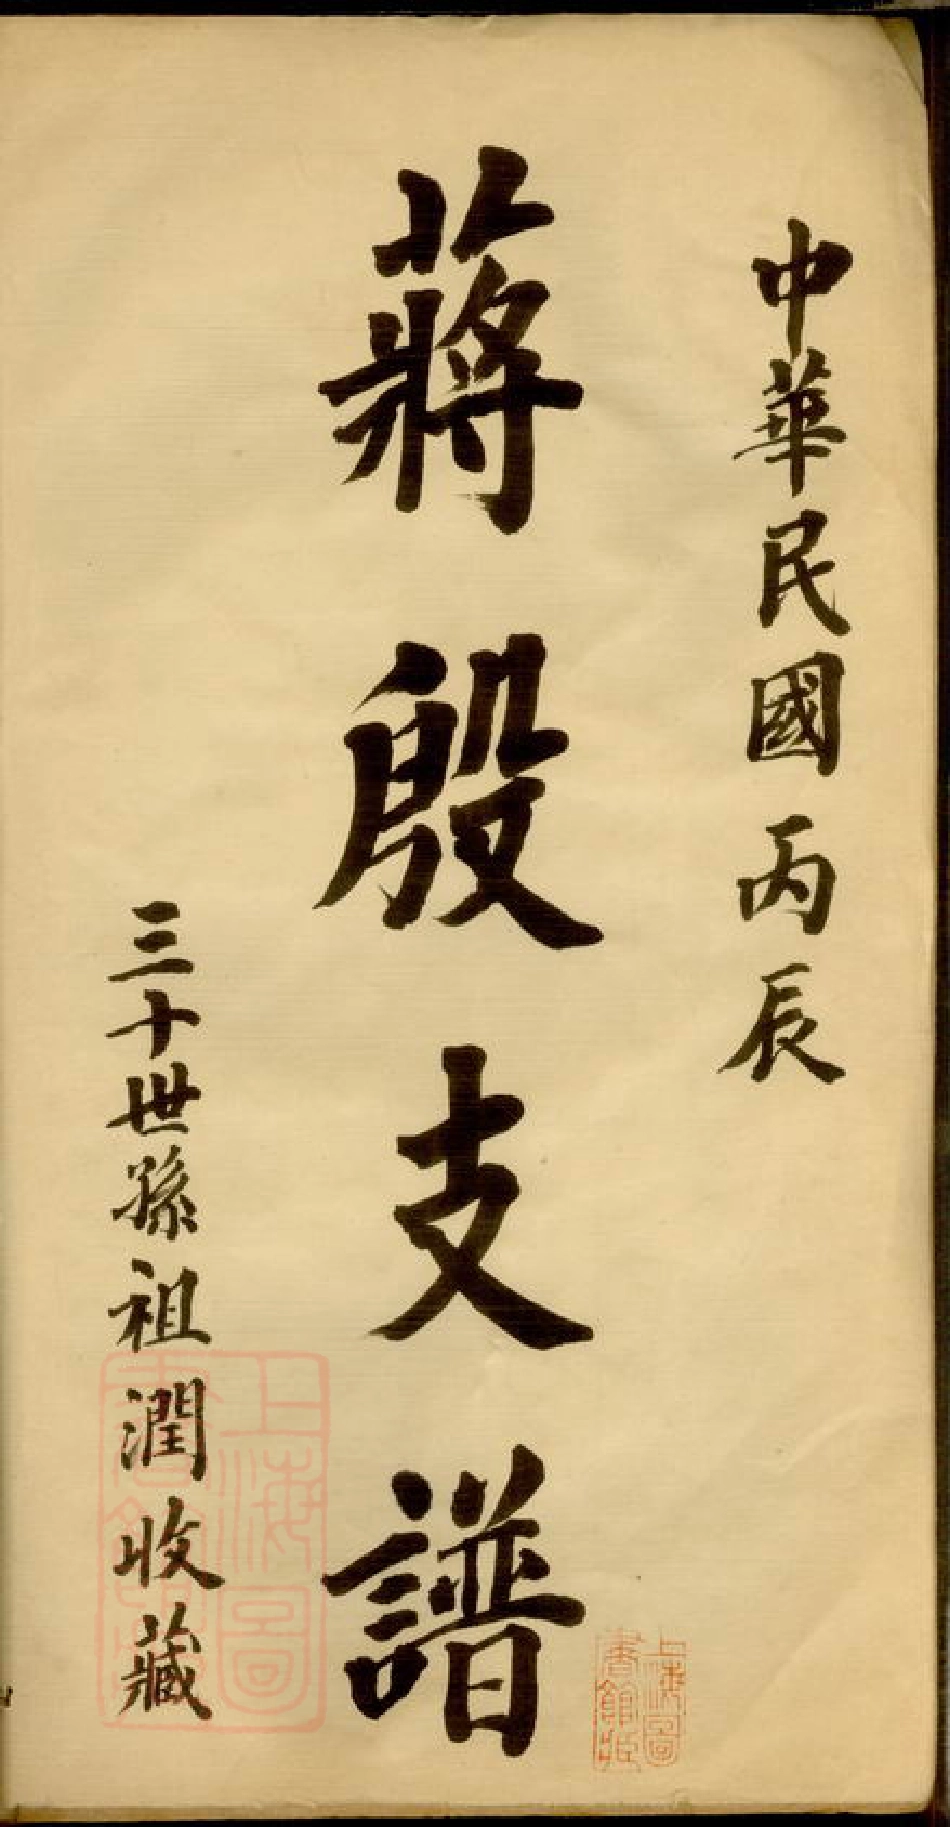 中華民國丙辰
蔣殷支譜
三十世孫祖潤收藏
上海圖
書館藏
上海圖
書館